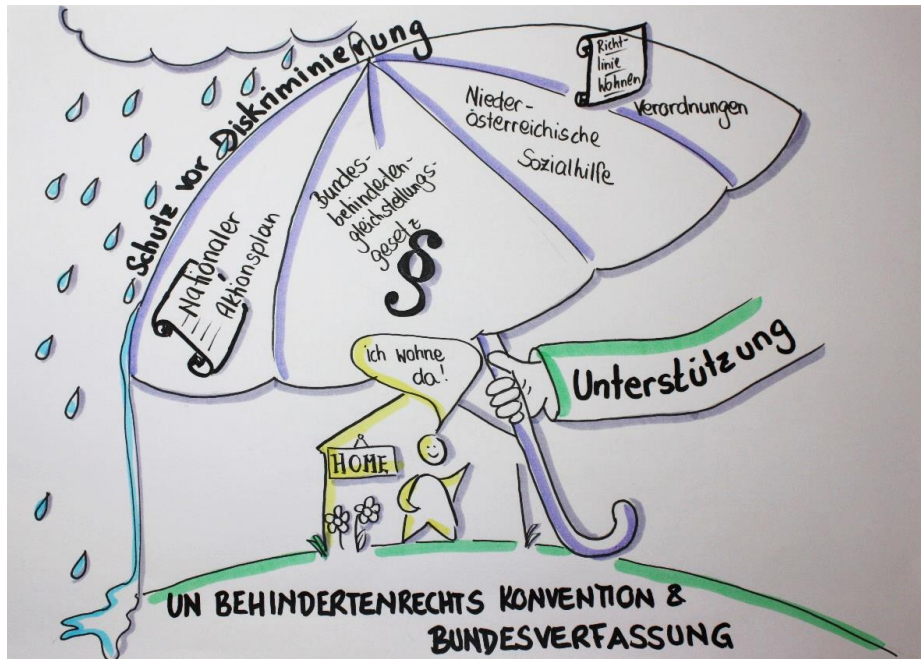 Schutz vor Diskriminierung
Nationaler
Aktionsplan
Bundes-
behinderten-
gleichstellungs-
gesetz
§
Nieder-
österreichische
Sozialhilfe
Richt-
linie
Wohnen
Verordnungen
ich wohne
da!
Unterstützung
HOME
UN BEHINDERTENRECHTS KONVENTION &
BUNDESVERFASSUNG